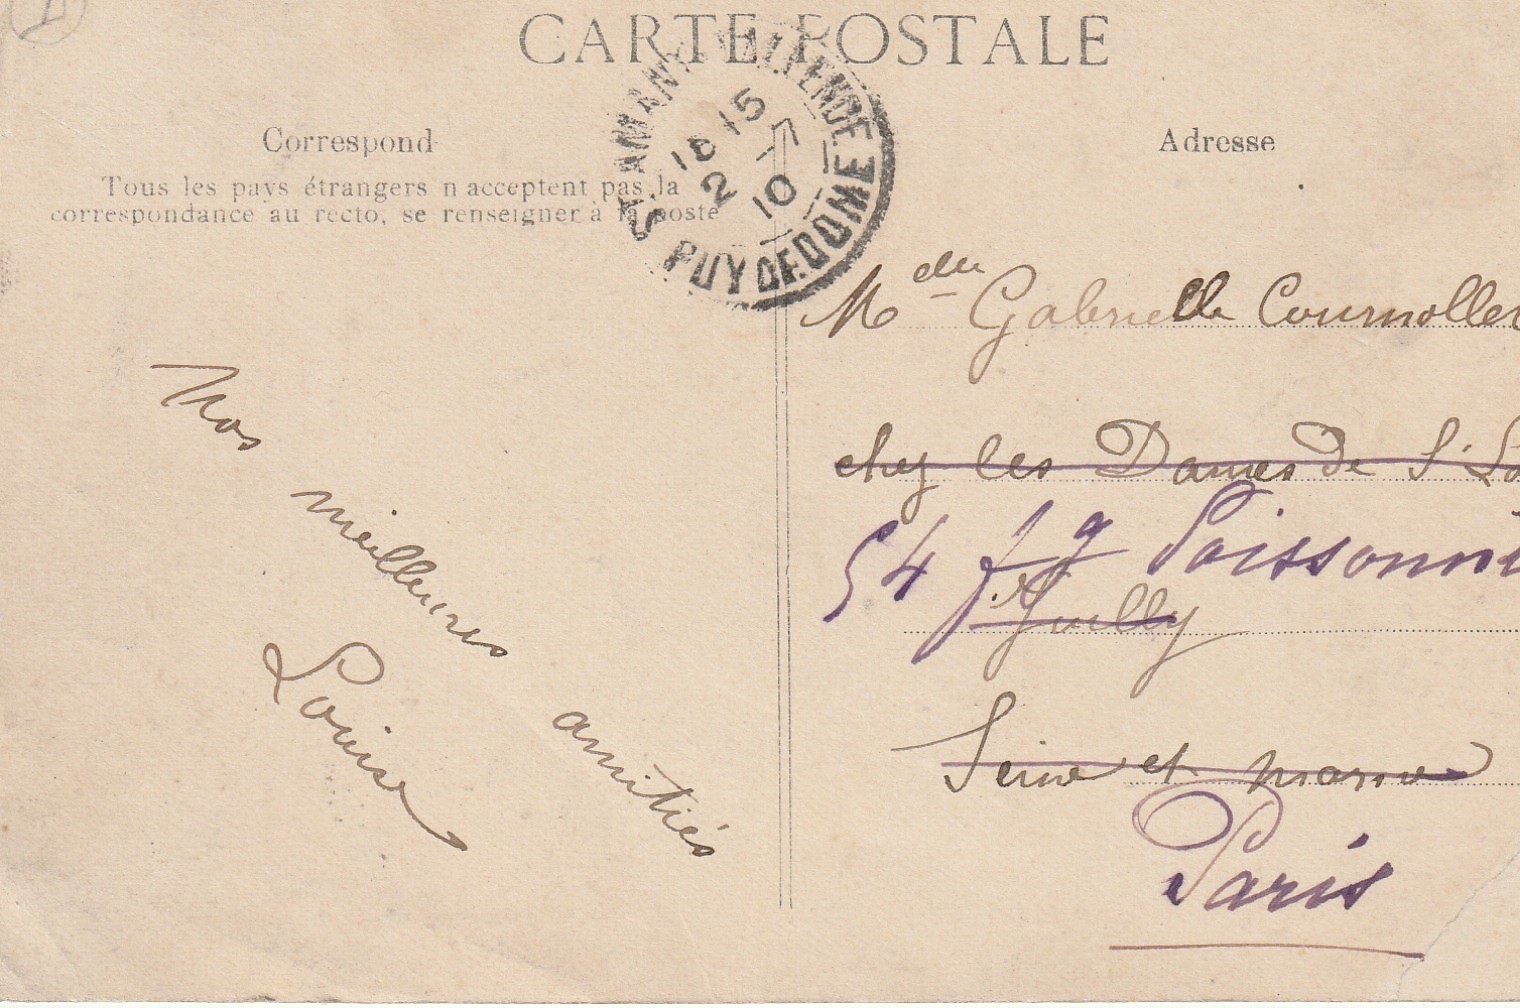 CARTE POSTALE
Correspond
Adresse
Tous les pays étrangers n acceptent pas la
correspondance au recto, se renseigner à la poste
St AMANT-TALLENDE
18 15
2 - 7
10
PUY DE DOME
Nos meilleures amitiés
Louise
Mdlle Gabrielle Cournollet
chez les Dames de St Lo
54 fg Poissonni
Juilly
Seine et marne
Paris